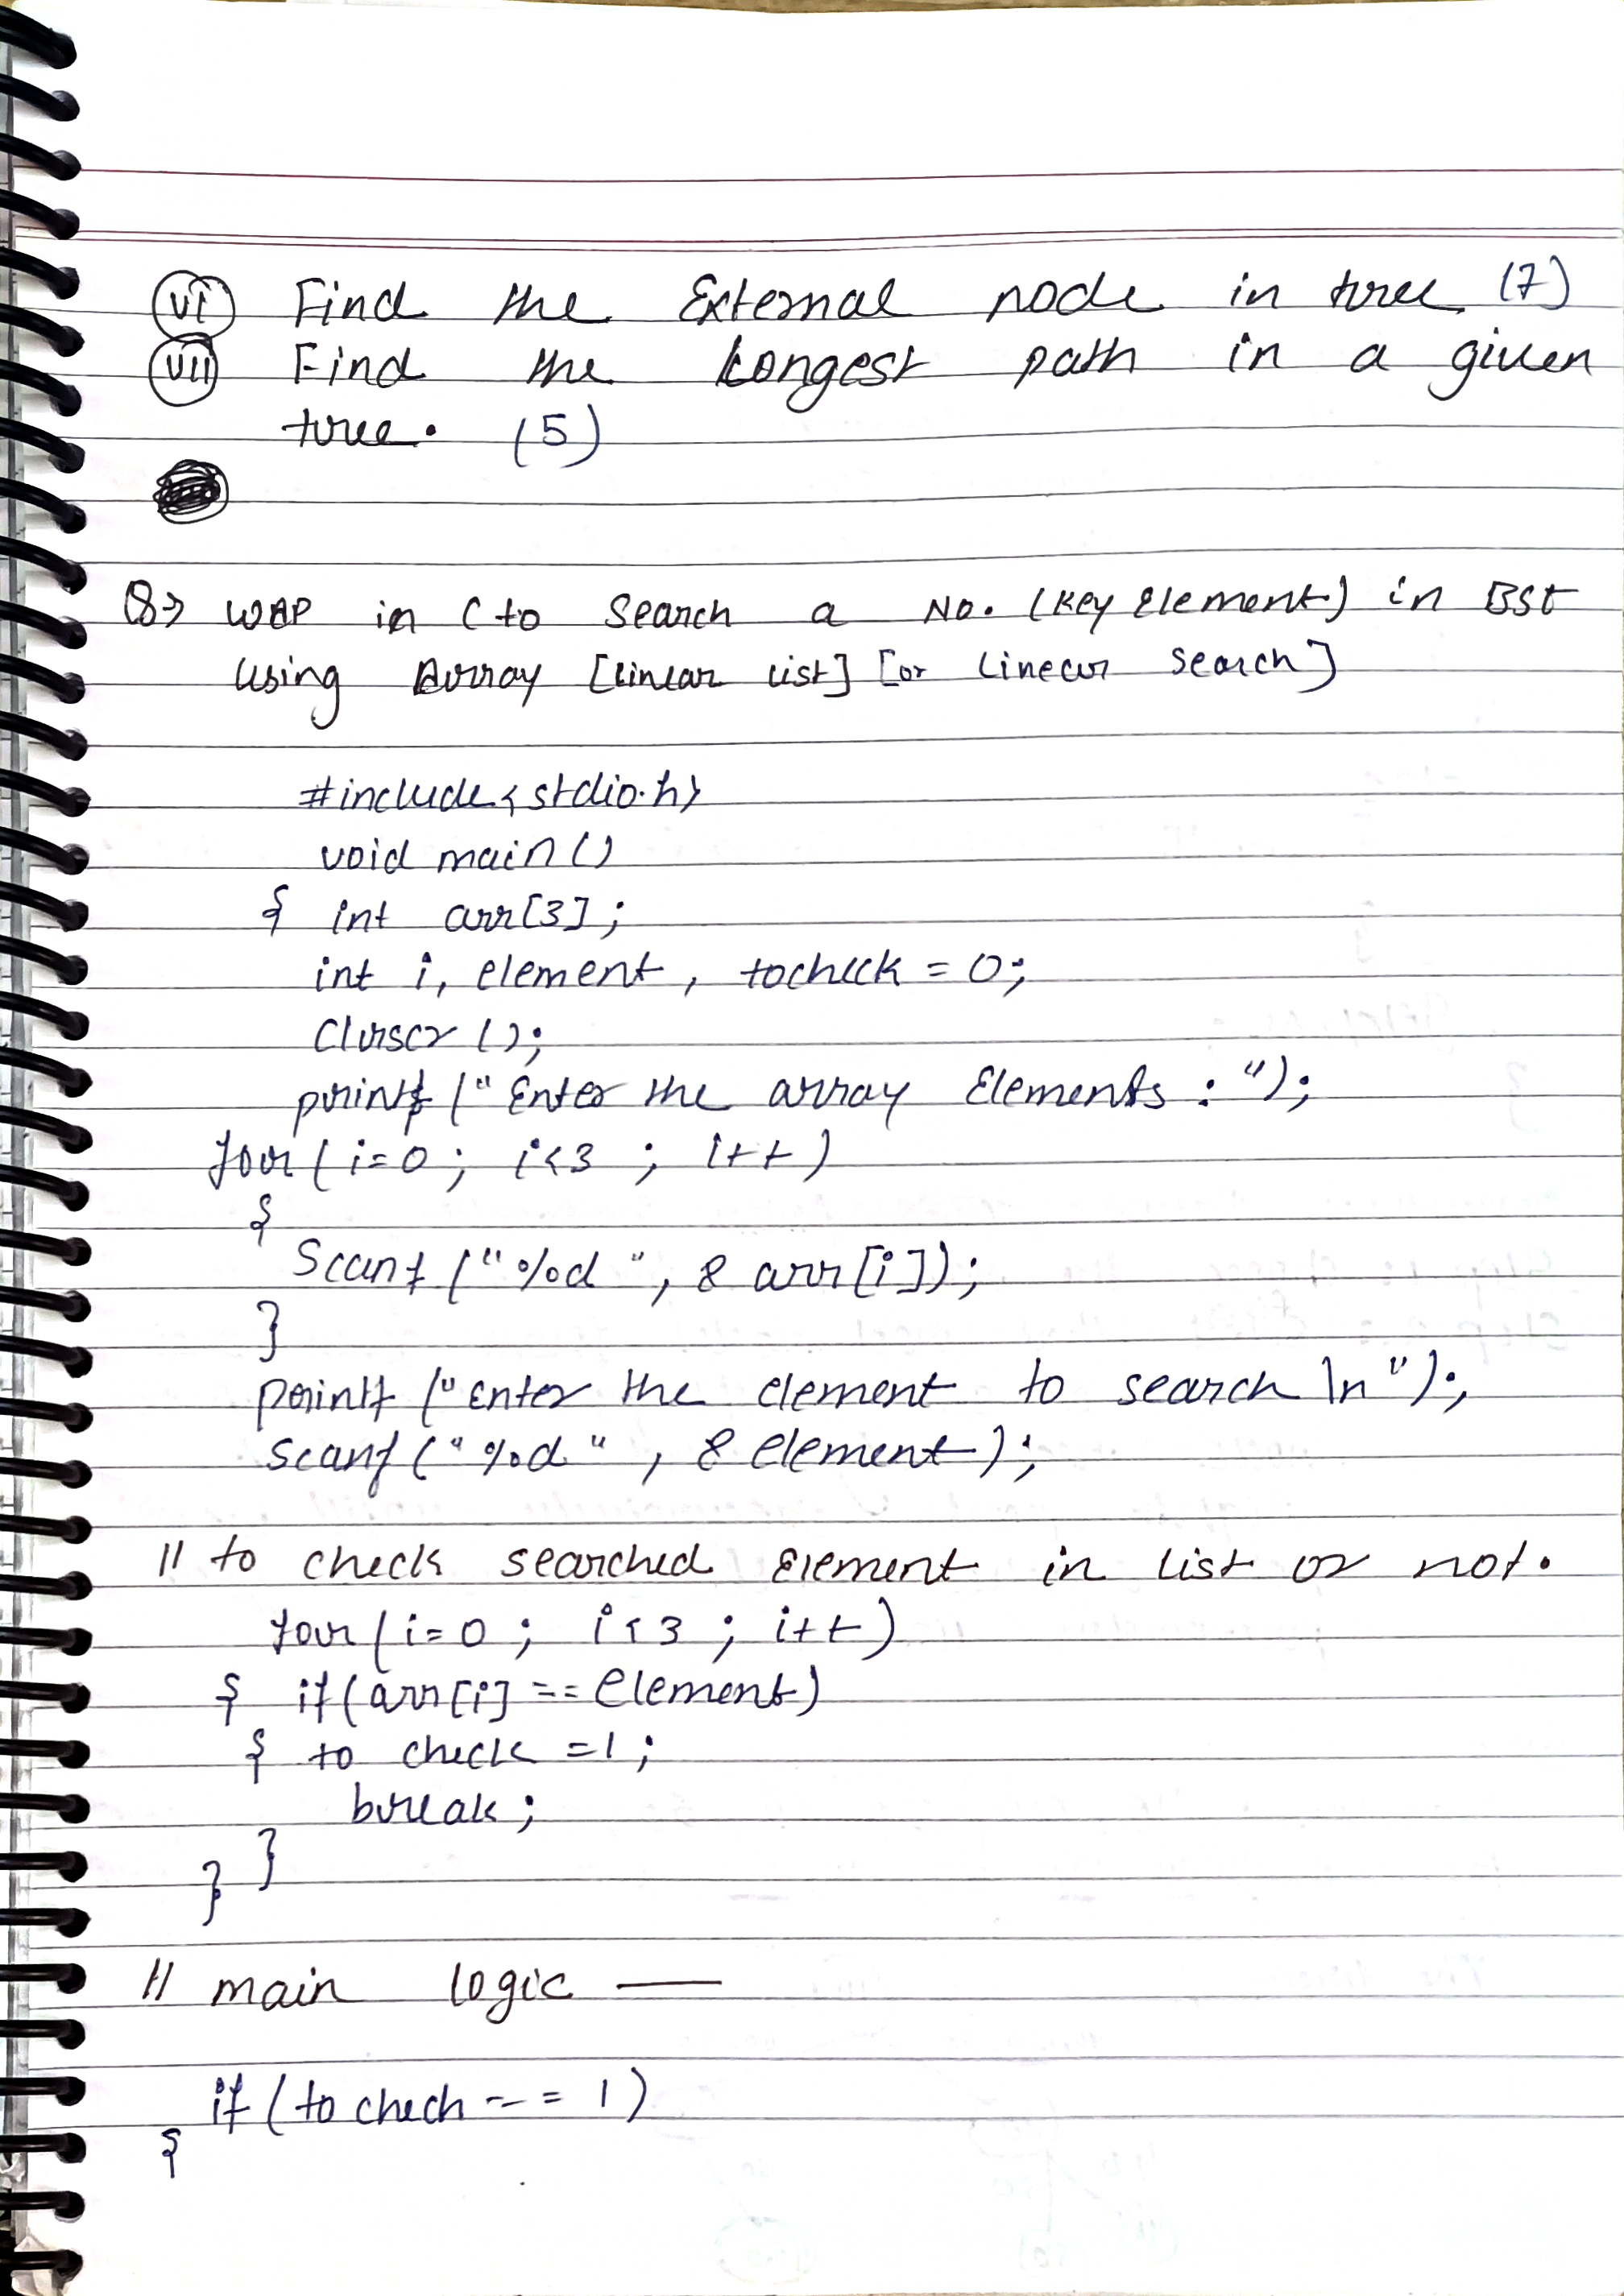 (vi) Find the External node in tree (7)
(vii) Find the Longest path in a given
tree. (5)
Q> WAP in C to Search a No. (Key Element) in BST
Using Array [linear list] [or Linear search]
#include<stdio.h>
void main()
{ int arr[3];
int i, element, tocheck = 0;
Clrscr();
printf("Enter the array Elements : ");
for(i=0; i<3 ; i++)
{
Scanf("%d", & arr[i]);
}
printf("Enter the element to search \n");
scanf("%d", & element);
// to check searched Element in list or not.
for(i=0; i<3; i++)
{ if(arr[i] == element)
{ to check =1;
break;
}
}
// main logic —
if(to chech == 1)
{